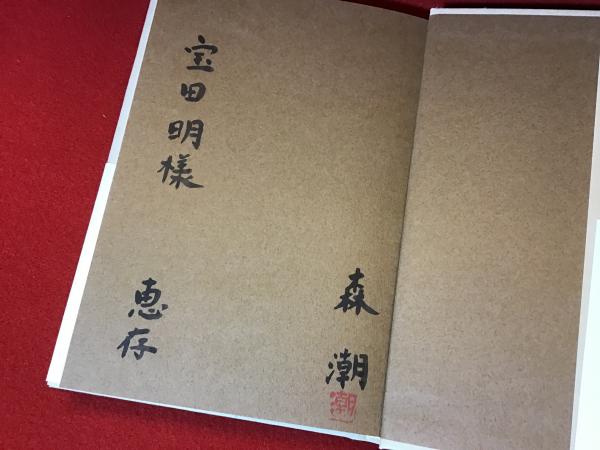 宝田明様
恵存
森潮
潮